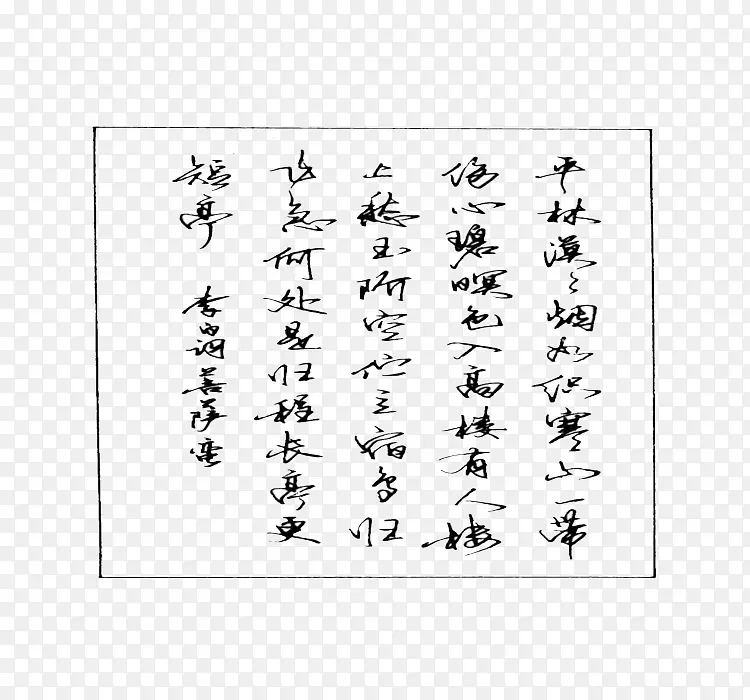 平林漠々烟如织寒山一带
伤心碧暝色入高楼有人楼
上愁玉阶空伫立宿鸟归
飞急何处是归程长亭更
短亭 李白词菩萨蛮